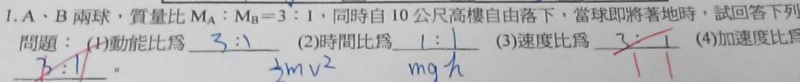 1. A、B 兩球，質量比 MA：MB=3：1，同時自 10 公尺高樓自由落下，當球即將著地時，試回答下列
問題：(1)動能比為 3:1 (2)時間比為 1:1 (3)速度比為 3:1 (4)加速度比為
3:1。 1 1
½mv² mgh